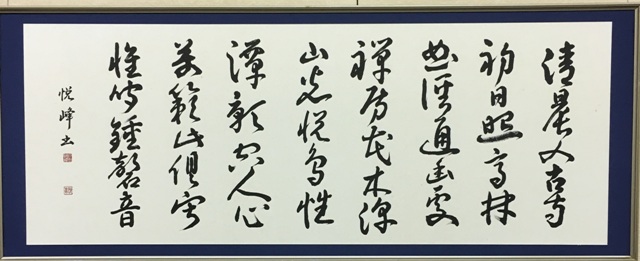 清晨入古寺
初日照高林
曲徑通幽處
禅房花木深
山光悦鳥性
潭影空人心
萬籟此俱寂
惟聞鍾磬音
悦峰书